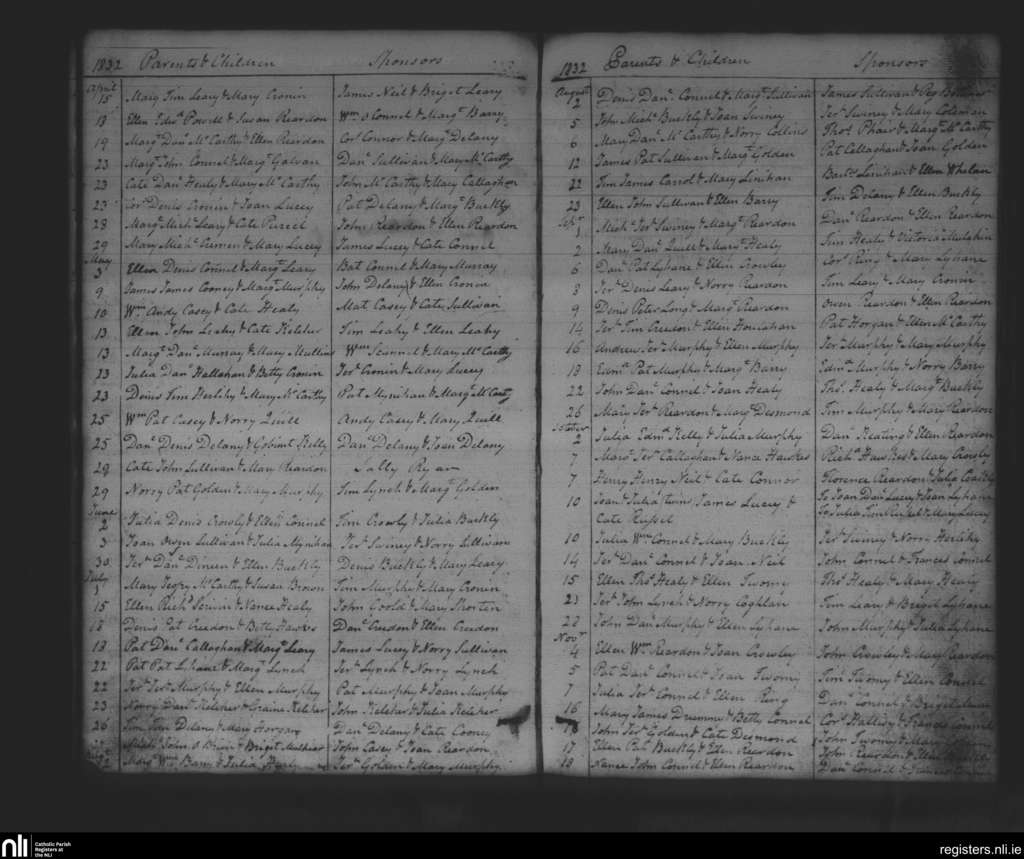 1832 Parents & Children Sponsors
April
15 Mary Tim Leary & Mary Cronin James Neil & Briget Leary
18 Ellen Edwd Powell & Susan Reardon Wm O Connel & Margt Barry
19 Margt Danl McCarthy & Ellen Reardon Cors Connor & Margt Delany
23 Margt John Connel & Margt Galvan Danl Sullivan & Mary McCarthy
23 Cate Danl Healy & Mary McCarthy John McCarthy & Mary Callaghan
23 Cors Denis Cronin & Joan Lucey Pat Delany & Margt Buckly
28 Margt Michl Leary & Cate Purcel John Reardon & Ellen Reardon
29 Mary Michl & Mary Lucey James Lucey & Cate Connel
May
3 Ellen Denis Connel & Margt Leary Bat Connel & Mary Murray
9 James James Cooney & Margt Murphy John Delany & Ellen Cronin
10 Wm Andy Casey & Cate Healy Mat Casey & Cate Sullivan
13 Ellen John Leahy & Cate Keleher Tim Leahy & Ellen Leahy
13 Margt Danl Murray & Mary Mullins Wm Scannel & Mary McCarthy
23 Julia Danl Hallahan & Betty Cronin Jerh Cronin & Mary Lucey
23 Denis Tim Herlihy & Mary McCarthy Pat Mynihan & Margt McCarty
25 Wm Pat Casey & Norry Quill Andy Casey & Mary Quill
25 Danl Denis Delany & Gobinet Kelly Danl Delany & Joan Delany
29 Cate John Sullivan & Mary Reardon Sally Ryan
29 Norry Pat Golden & Mary Murphy Tim Lynch & Margt Golden
June
2 Julia Denis Crowly & Ellen Connel Tim Crowly & Julia Buckly
3 Joan Owen Sullivan & Julia Mynihan Jerh Swiney & Norry Sullivan
30 Jerh Danl Dineen & Ellen Buckly Denis Buckly & Mary Leary
July
1 Mary Jeofry McCarthy & Susan Brown Tim Murphy & Mary Cronen
15 Ellen Richd & Nance Healy John Goold & Mary Shorten
18 Denis Pat Creedon & Betty Hawkes Danl Creedon & Ellen Creedon
18 Pat Danl Callaghan & Margt Leary James Lucey & Norry Sullivan
22 Pat Pat Lyhane & Margt Lynch Jerh Lynch & Norry Lynch
22 Jerh Jerh Murphy & Ellen Murphy Pat Murphy & Joan Murphy
23 Norry Danl Keleher & Graine Keleher John Keleher & Julia Keleher
26 Tim Tim Delany & Mary Horgan Danl Delany & Cate Cooney
John O Brien & Briget John Casey & Joan Reardon
Margt Wm Barry & Julia Jerh Golden & Mary Murphy
1832 Parents & Children Sponsors
August
2 Denis Danl Connel & Margt Sullivan James Sullivan & Peg
5 John Michl Buckly & Joan Swiney Jerh Swiney & Mary Coleman
6 Mary Danl McCarthy & Norry Collins Thos Phair & Margt McCarthy
12 James Pat Sullivan & Margt Golden Pat Callaghan & Joan Golden
22 Tim James Carrol & Mary Linihan Linihan & Ellen Whelan
23 Ellen John Sullivan & Ellen Barry Tim Delany & Ellen Buckly
Sept
1 Michl Jerh Swiney & Margt Reardon Danl Reardon & Ellen Reardon
2 Mary Danl Quill & Mary Healy Tim Healy & Victoria
6 Danl Pat Lyhane & Ellen Crowley Cors Ring & Mary Lyhane
8 Jerh Denis Leary & Norry Reardon Tim Leary & Mary Cronin
9 Denis Peter Long & Margt Reardon Owen Reardon & Ellen Reardon
14 Jerh Tim Creedon & Ellen Hourahan Pat Horgan & Ellen McCarthy
16 Andrew Jerh Murphy & Ellen Murphy Jerh Murphy & Mary Murphy
18 Pat Murphy & Margt Barry Edmd Murphy & Norry Barry
22 John Danl Connel & Joan Healy Thos Healy & Margt Buckly
26 Mary Jerh Reardon & Margt Desmond Tim Murphy & Mary Reardon
October
2 Julia Edmd Kelly & Julia Murphy Danl Keating & Ellen Reardon
7 Margt Jerh Callaghan & Nance Hawkes Richd Hawkes & Mary Crosly
7 Henry Henry Neil & Cate Connor Florence Reardon & Julia
10 Joan & Julia (twins) James Lucey & To Joan Danl Lucey & Joan Lyhane
Cate Russel To Julia Tim Russel & Mary Lucey
10 Julia Wm Connel & Mary Buckly Jerh Swiney & Norry Herlihy
14 Jerh Danl Connel & Joan Neil John Connel & Frances Connel
15 Ellen Thos Healy & Ellen Twomy Thos Healy & Mary Healy
21 Jerh John Lynch & Norry Coghlan Tim Leary & Briget Lyhane
22 John Danl Murphy & Ellen Lyhane John Murphy & Julia Lyhane
Novr
4 Ellen Wm Reardon & Joan Crowley John Crowley & Mary Reardon
5 Pat Danl Connel & Joan Twomy Tim Twomy & Ellen Connel
7 Julia Jerh Connel & Ellen Ring Dan Connel & Briget
16 Mary James & Betty Connel Cors & Connel
18 John Jerh Golden & Cate Desmond John Twomy & Mary
17 Ellen Pat Buckly & Ellen Reardon John Reardon & Ellen
18 Nance John Connel & Ellen Reardon Danl Connel &
nli
Catholic Parish
Registers at
the NLI
registers.nli.ie